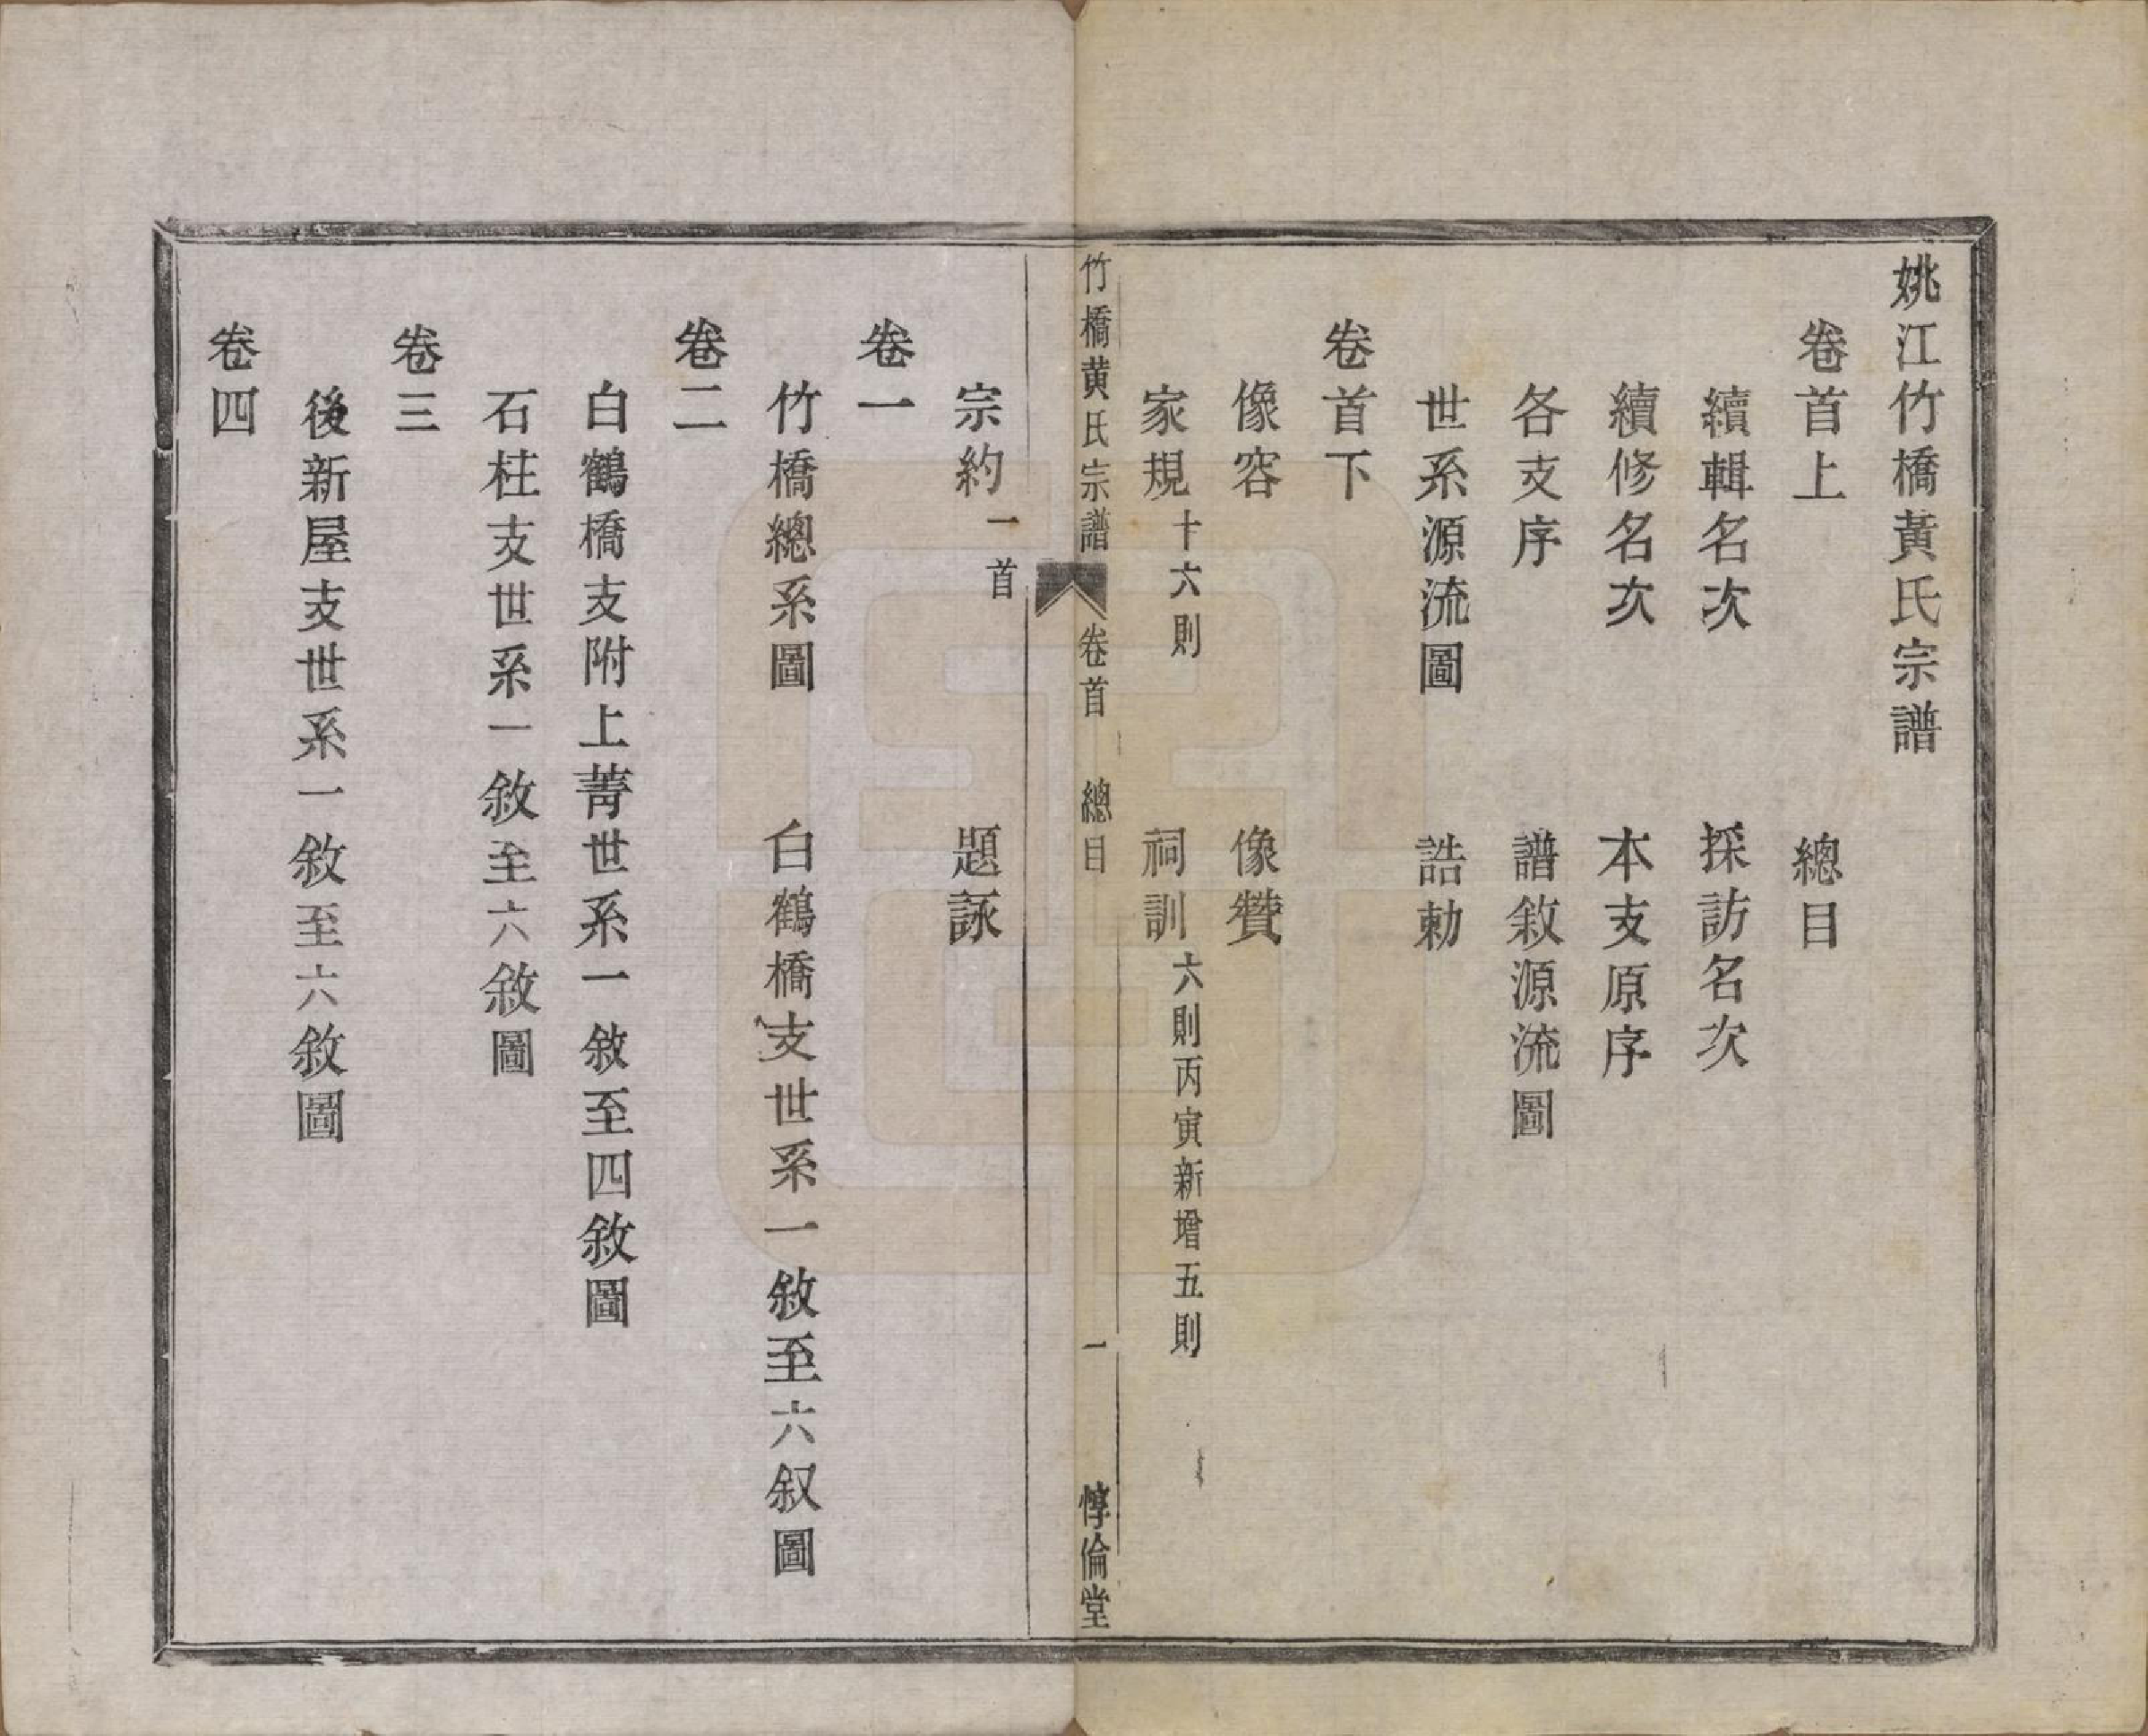 姚江竹橋黃氏宗譜
卷首上　總目
續輯名次　採訪名次
續修名次　本支原序
各支序　譜敘源流圖
世系源流圖　誥勅
卷首下
像容　像贊
家規十六則　祠訓六則丙寅新增五則
竹橋黄氏宗譜　卷首　總目　一　惇倫堂
宗約一首　題詠
卷一
竹橋總系圖　白鶴橋支世系一敘至六叙圖
卷二
白鶴橋支附上菁世系一敘至四敘圖
石柱支世系一敘至六敘圖
卷三
後新屋支世系一敘至六敘圖
卷四